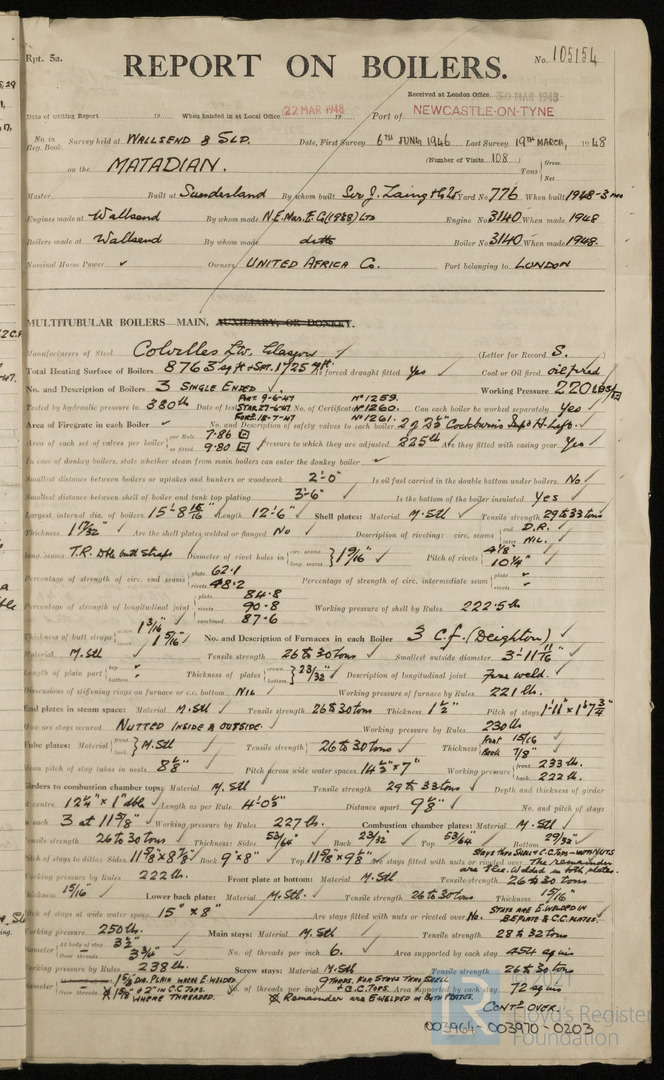 Rpt. 5a.
No. 105154
REPORT ON BOILERS.
Received at London Office 30 MAR 1948
Date of writing Report 19 When handed in at Local Office 22 MAR 1948 19 Port of NEWCASTLE-ON-TYNE
No. in Reg. Book. Survey held at WALLSEND & SLD. Date, First Survey 6TH JUNE 1946 Last Survey 19TH MARCH, 1948
(Number of Visits 108)
on the MATADIAN. Tons { Gross Net
Master Built at Sunderland By whom built Sir J. Laing & Co Ltd Yard No. 776 When built 1948-3 mo
Engines made at Wallsend By whom made N.E. Mar. E. Co (1938) LTD Engine No. 3140 When made 1948
Boilers made at Wallsend By whom made ditto Boiler No. 3140 When made 1948.
Nominal Horse Power ✓ Owners UNITED AFRICA CO. Port belonging to LONDON
MULTITUBULAR BOILERS MAIN, AUXILIARY, OR DONKEY.
Manufacturers of Steel Colvilles Ltd. Glasgow (Letter for Record S.)
Total Heating Surface of Boilers 8763 sq ft + SPT. 1725 sq ft. Is forced draught fitted Yes Coal or Oil fired oil fired
No. and Description of Boilers 3 SINGLE ENDED Working Pressure 220 LBS/□"
Tested by hydraulic pressure to 380 lb Date of test PORT 9-6-47 STAR. 27-6-47 FORE. 18-7-47 No. of Certificate No 1259. No 1260. No 1261. Can each boiler be worked separately Yes
Area of Firegrate in each Boiler ✓ No. and Description of safety valves to each boiler 2 of 2½" Cockburn's Impd H. Lift.
Area of each set of valves per boiler { per Rule 7.86 □" as fitted 9.80 □" Pressure to which they are adjusted 225 lb Are they fitted with easing gear Yes
In case of donkey boilers, state whether steam from main boilers can enter the donkey boiler ✓
Smallest distance between boilers or uptakes and bunkers or woodwork 2'-0" Is oil fuel carried in the double bottom under boilers No.
Smallest distance between shell of boiler and tank top plating 3'-6" Is the bottom of the boiler insulated Yes
Largest internal dia. of boilers 15'-8 15/16" Length 12'-6" Shell plates: Material M. Stl Tensile strength 29 to 33 tons
Thickness 1 17/32" Are the shell plates welded or flanged No Description of riveting: circ. seams { end D.R. inter. NIL.
long. seams T.R. Dble butt straps Diameter of rivet holes in { circ. seams long. seams } 1 9/16" Pitch of rivets { 4 1/8" 10 1/4"
Percentage of strength of circ. end seams { plate 62.1 rivets 48.2 Percentage of strength of circ. intermediate seam { plate ✓ rivets ✓
Percentage of strength of longitudinal joint { plate 84.8 rivets 90.8 combined 87.6 Working pressure of shell by Rules 222.5 lb
Thickness of butt straps { outer 1 3/16" inner 1 5/16" No. and Description of Furnaces in each Boiler 3 C.f. (Deighton)
Material M. Stl Tensile strength 26 to 30 tons Smallest outside diameter 3'-11 11/16"
Length of plain part { top ✓ bottom ✓ Thickness of plates { crown bottom } 23/32" Description of longitudinal joint Fire weld.
Dimensions of stiffening rings on furnace or c.c. bottom NIL Working pressure of furnace by Rules 221 lb.
End plates in steam space: Material M. Stl Tensile strength 26 to 30 tons Thickness 1½" Pitch of stays 1'-11" x 1'-7¾"
How are stays secured NUTTED INSIDE & OUTSIDE. Working pressure by Rules 230 lb
Tube plates: Material { front back } M. Stl Tensile strength { 26 to 30 tons Thickness { Front 15/16 Back 7/8"
Mean pitch of stay tubes in nests 8 5/8" Pitch across wide water spaces 14½" x 7" Working pressure { front 233 lb. back 222 lb.
Girders to combustion chamber tops: Material M. Stl Tensile strength 29 to 33 tons Depth and thickness of girder
at centre 12¼" x 1" dble Length as per Rule 4'-0½" Distance apart 9 5/8" No. and pitch of stays
in each 3 at 11 5/8" Working pressure by Rules 227 lb. Combustion chamber plates: Material M. Stl
Tensile strength 26 to 30 tons Thickness: Sides 53/64" Back 23/32" Top 53/64" Bottom 29/32"
Pitch of stays to ditto: Sides 11 5/8" x 8 7/8" Back 9" x 8" Top 11 5/8" x 9 5/8" Are stays fitted with nuts or riveted over Stays thro Shell & C.C. Tops - with NUTS The remainder are Elec. Welded in both plates.
Working pressure by Rules 222 lb. Front plate at bottom: Material M. Stl Tensile strength 26 to 30 tons
Thickness 15/16" Lower back plate: Material M. Stl Tensile strength 26 to 30 tons Thickness 15/16"
Pitch of stays at wide water space 15" x 8" Are stays fitted with nuts or riveted over No. STAYS ARE E WELDED IN B.E PLATE & C.C PLATES.
Working pressure 250 lb. Main stays: Material M. Stl Tensile strength 28 to 32 tons
Diameter { At body of stay 3½" Over threads 3¾" No. of threads per inch 6. Area supported by each stay 454 sq in
Working pressure by Rules 238 lb. Screw stays: Material M. Stl Tensile strength 26 to 30 tons
Diameter { 1 5/8 DIA. PLAIN WHERE E WELDED. Over threads 1 5/8" + 2" IN C.C TOPS. WHERE THREADED. No. of threads per inch 9 THRDS. FOR STAYS THRO SHELL & C.C. TOPS. Area supported by each stay 72 sq in
Remainder are E WELDED IN BOTH PLATES. CONTD OVER.
Lloyd's Register
Foundation
003964-003970-0203